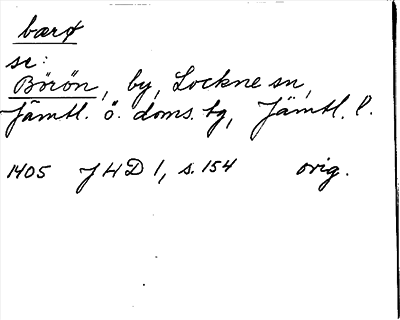 bærø
se:
Börön, by, Lockne sn,
Jämtl. ö. doms. tg, Jämtl. l.
1405 JHD 1, s. 154 orig.